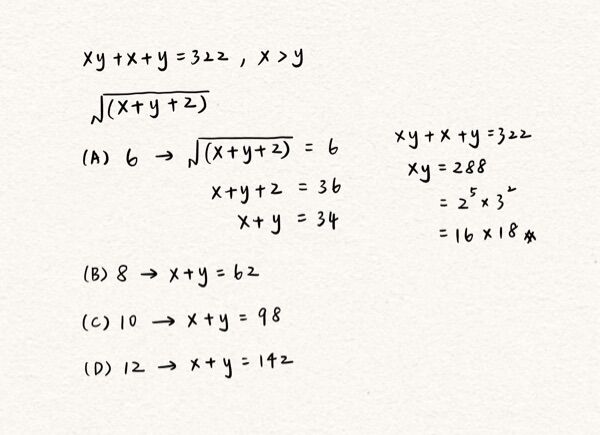 xy + x + y = 322 , x > y
√(x + y + 2)
(A) 6 → √(x + y + 2) = 6
x + y + 2 = 36
x + y = 34
xy + x + y = 322
xy = 288
= 2⁵ × 3²
= 16 × 18 *
(B) 8 → x + y = 62
(C) 10 → x + y = 98
(D) 12 → x + y = 142